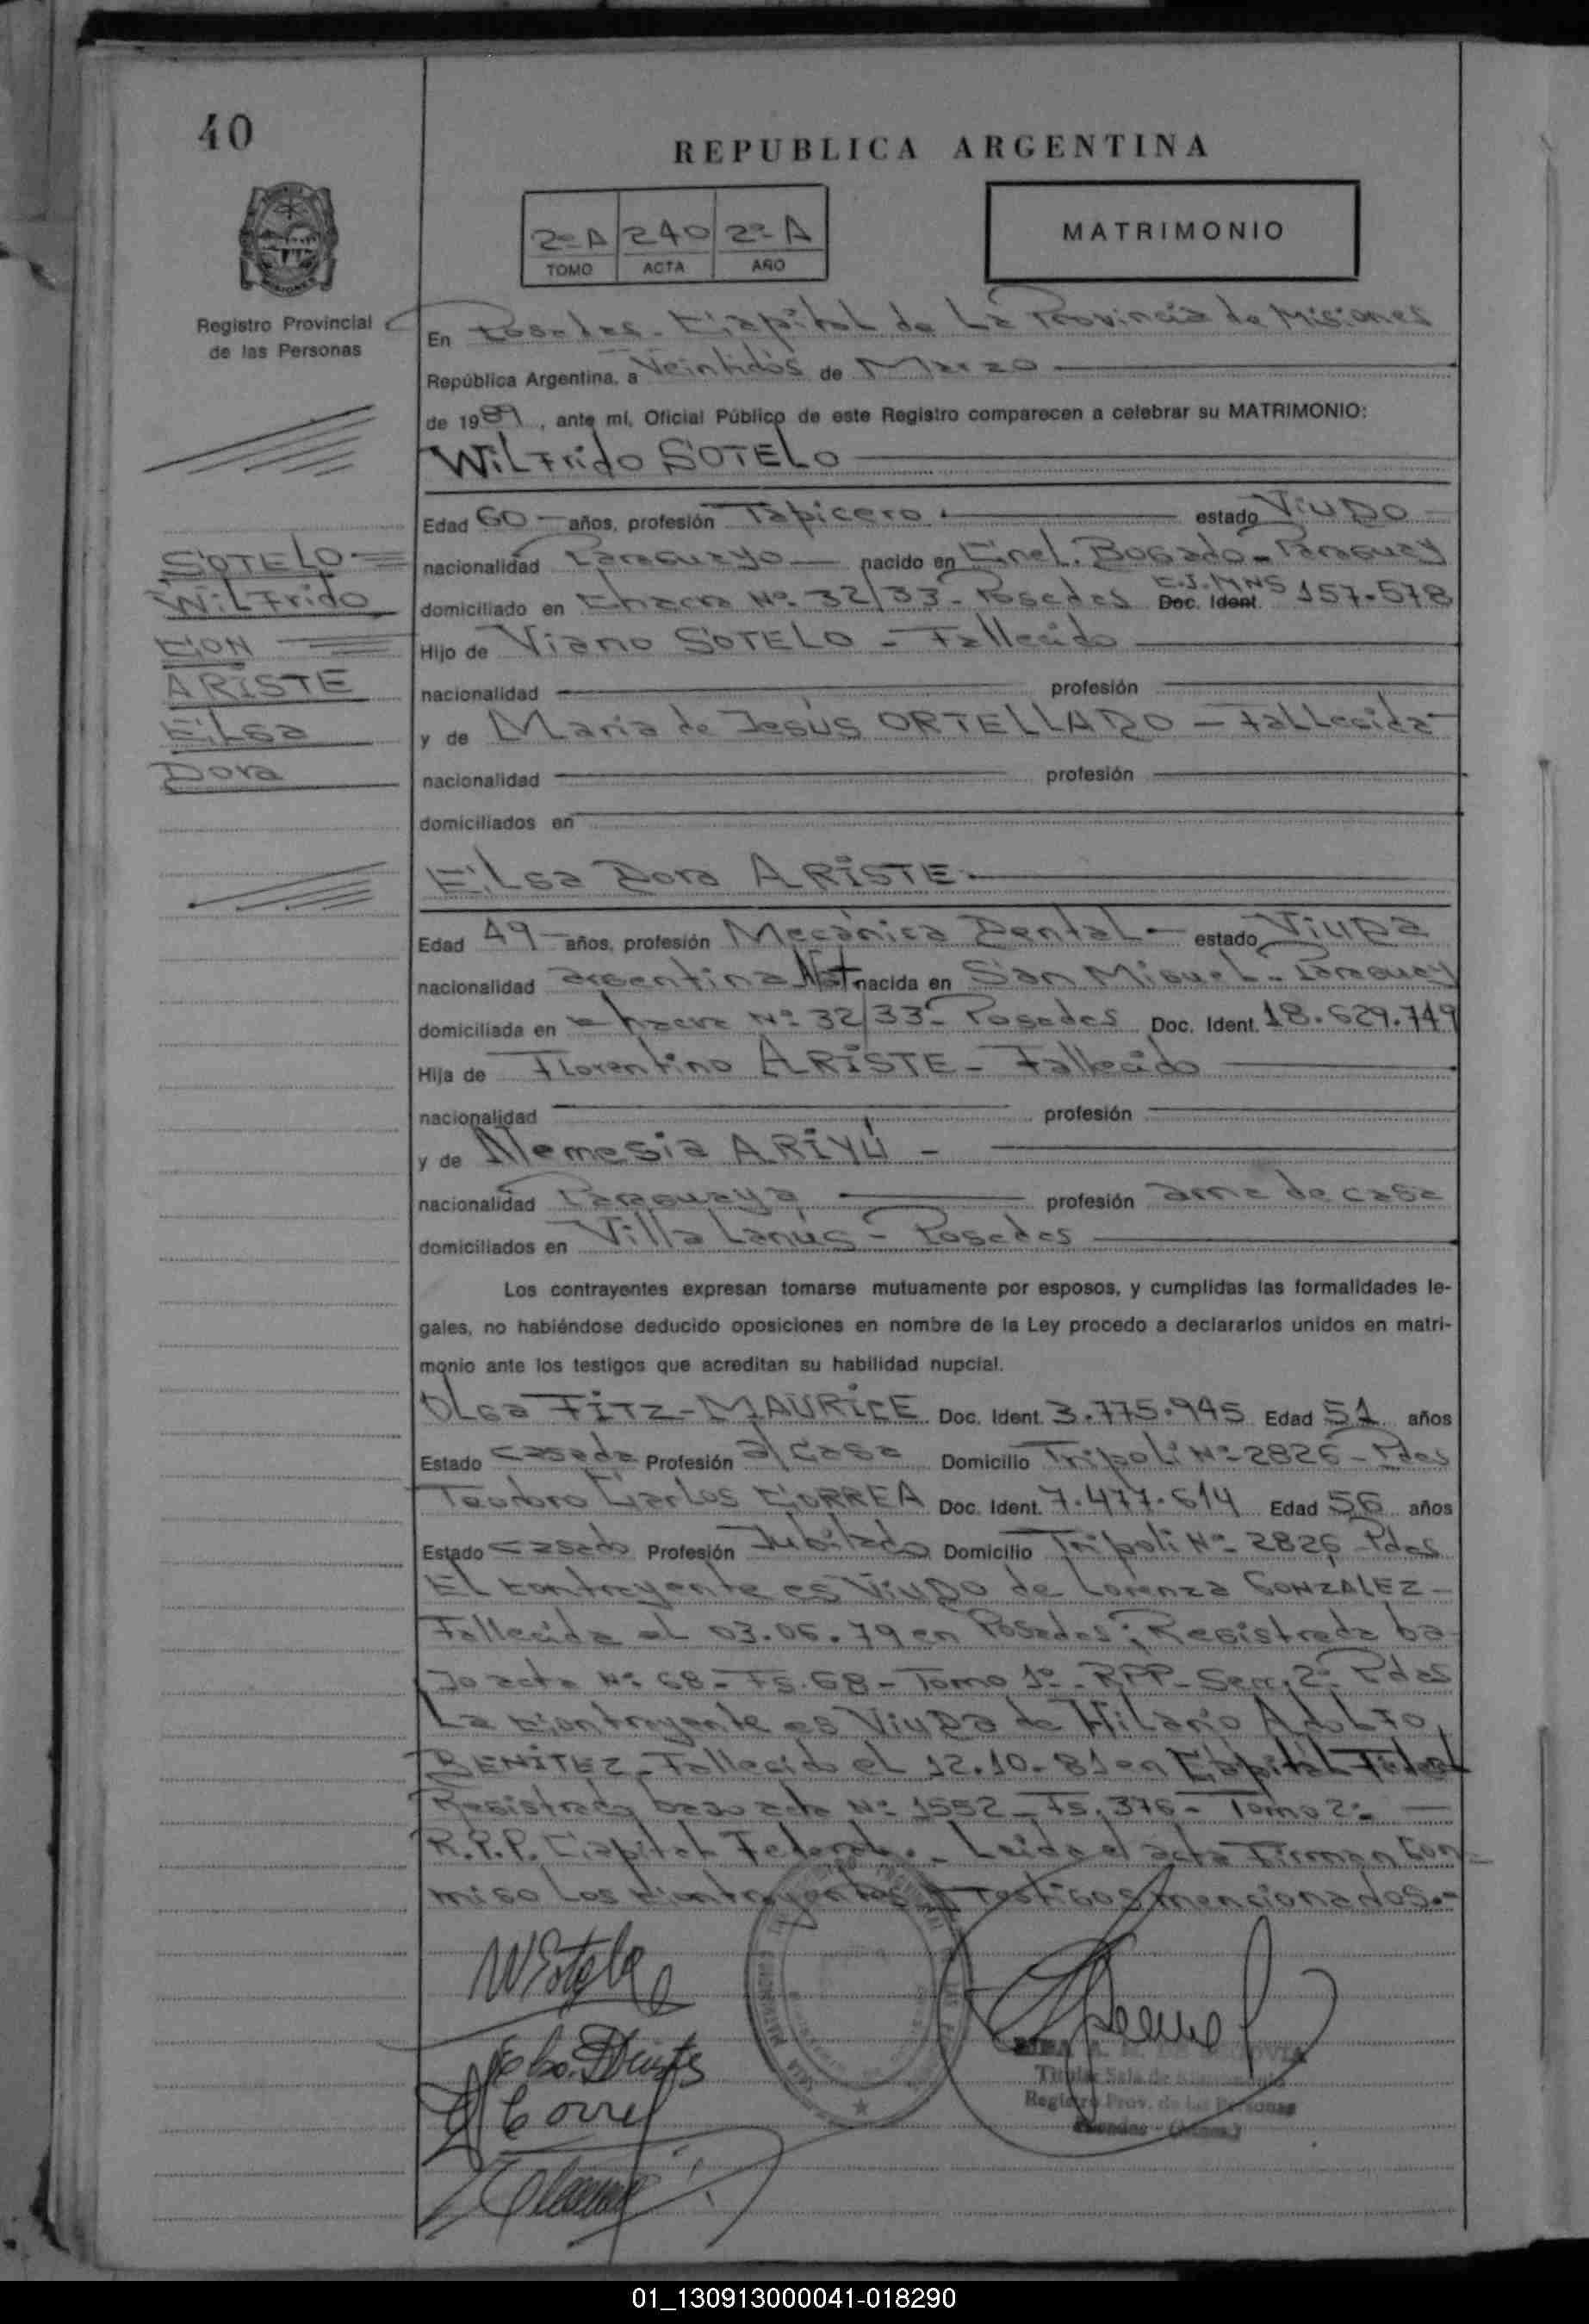 40
REPUBLICA ARGENTINA
2º A 240 2º A
TOMO ACTA AÑO
MATRIMONIO
Registro Provincial
de las Personas
En Posadas - Capital de La Provincia de Misiones
República Argentina, a Veintidós de Marzo
de 1989, ante mí, Oficial Público de este Registro comparecen a celebrar su MATRIMONIO:
Wilfrido SOTELO
Edad 60 años, profesión Tapicero estado Viudo
SOTELO
nacionalidad Paraguayo nacido en Cnel. Bogado - Paraguay
Wilfrido
domiciliado en Chacra Nº 32/33 - Posadas Doc. Ident. C.I. MNS 157.578
CON
Hijo de Viano SOTELO - Fallecido
ARISTE
nacionalidad profesión
Elsa
y de Maria de Jesús ORTELLADO - Fallecida
Dora
nacionalidad profesión
domiciliados en
Elsa Dora ARISTE
Edad 49 años, profesión Mecánica Dental - estado Viuda
nacionalidad argentina Nat nacida en San Miguel - Paraguay
domiciliada en Chacra Nº 32/33 - Posadas Doc. Ident. 18.629.749
Hija de Florentino ARISTE - Fallecido
nacionalidad profesión
y de Nemesia ARIYÚ -
nacionalidad Paraguaya profesión ama de casa
domiciliados en Villa Lanús - Posadas
Los contrayentes expresan tomarse mutuamente por esposos, y cumplidas las formalidades le-
gales, no habiéndose deducido oposiciones en nombre de la Ley procedo a declararlos unidos en matri-
monio ante los testigos que acreditan su habilidad nupcial.
Olga FITZ-MAURICE Doc. Ident. 3.775.945 Edad 51 años
Estado casada Profesión a/casa Domicilio Tripoli Nº 2826 - Pdas
Carlos CORREA Doc. Ident. 7.477.614 Edad 56 años
Estado casado Profesión Jubilado Domicilio Tripoli Nº 2826 Pdas
El contrayente es Viudo de Lorenza GONZALEZ -
Fallecida el 03.06.79 en Posadas; Registrada ba-
jo acta Nº 68 - Fs. 68 - Tomo 1º - RPP - Secc. 2º Pdas
La contrayente es Viuda de Hilario Adolfo
BENITEZ - Fallecido el 12.10.81 en Capital Federal
Registrado bajo acta Nº 1552 - Fs. 376 - Tomo 2º -
R.P.P. Capital Federal. - Leida el acta Firman con-
migo Los contrayentes y Testigos mencionados.-
Titular Sala de
Registro Prov. de las Personas
Posadas - (Mnes.)
01_130913000041-018290